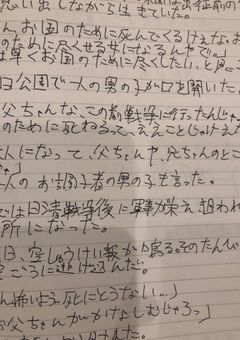 思い出しながら生きていた。
ん、お国のために死んでくるけぇな。お
のために尽くせる女になるんやで。
は早くお国のために尽くしたい、と思
日公園で一人の男の子が口を開いた。
父ちゃんな、この前戦争に行ったんじゃ
のために死ねるって、ええことじゃけえな
人になって、父ちゃんや、兄ちゃんのとこ
一人のお調子者の男の子も言った。
では日清戦争後に軍事が栄え、狙われ
所になった。
日、空しゅうけい報が鳴る。そのたんび
空ごうに逃げ込んだ。
ん怖いよう。死にとうない…」
お父ちゃんがかけ